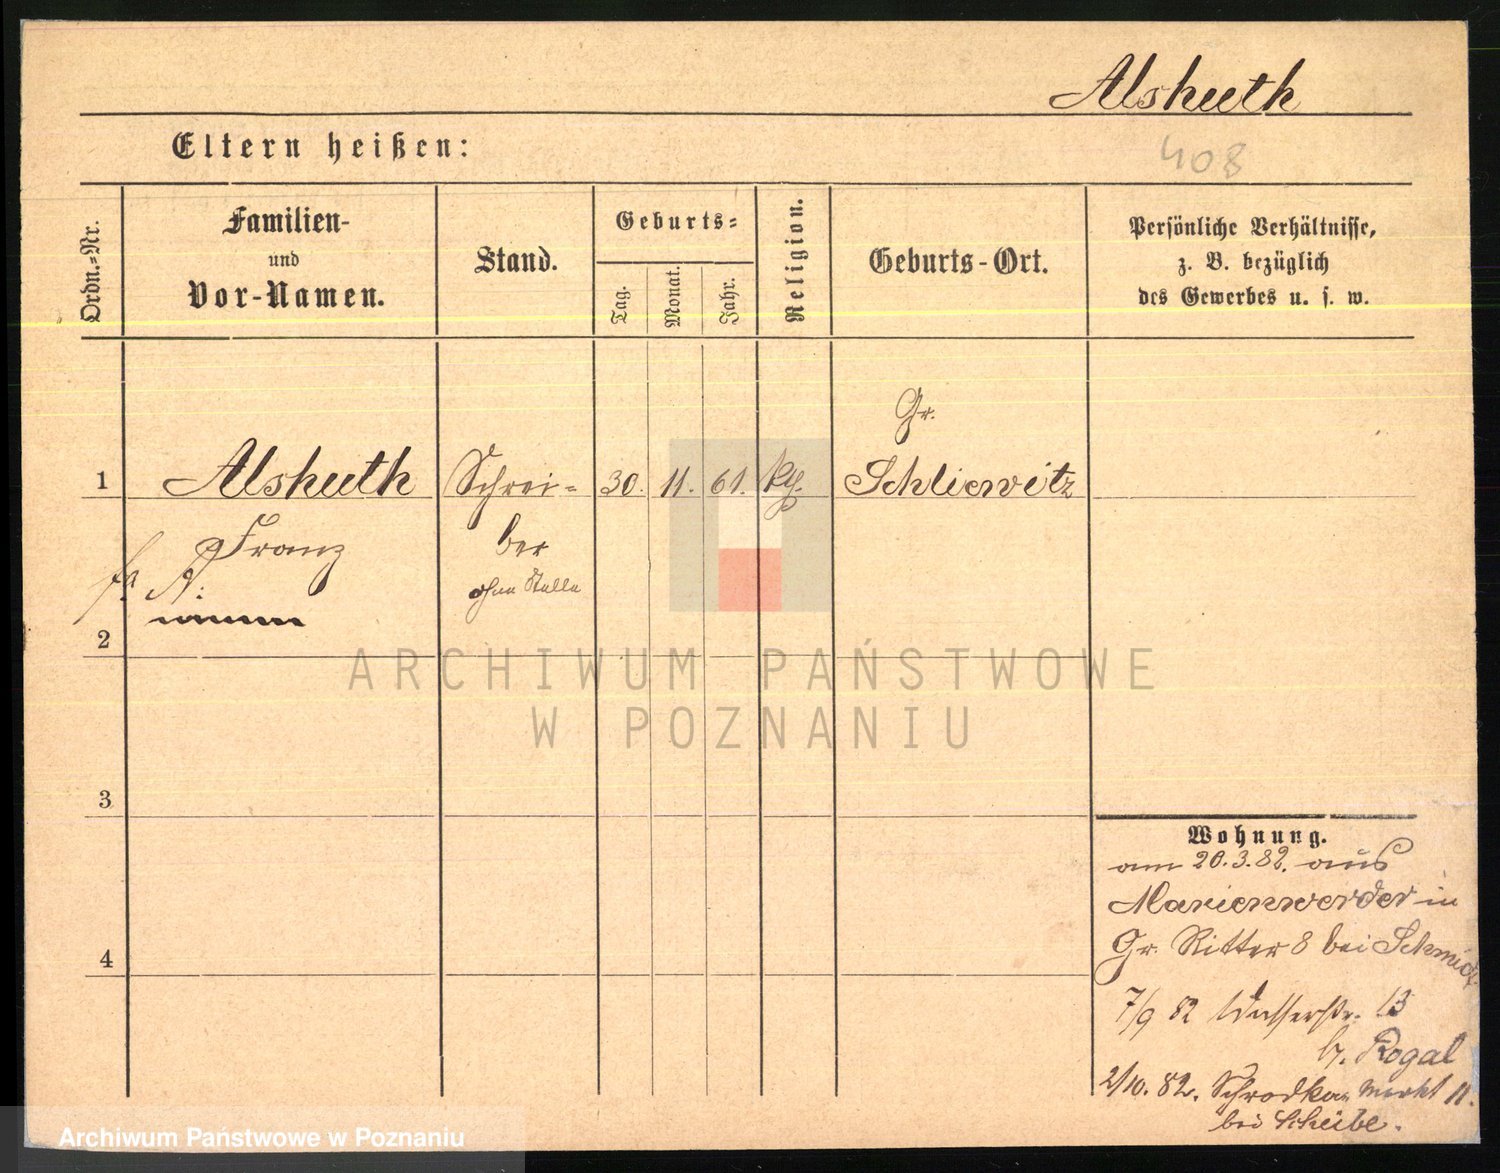 Alskuth
408
Eltern heißen:
Ordn.-Nr.
Familien-
und
Vor-Namen.
Stand.
Geburts-
Tag.
Monat.
Jahr.
Religion.
Geburts-Ort.
Persönliche Verhältnisse,
z. B. bezüglich
des Gewerbes u. s. w.
Gr.
1 Alskuth Schrei- 30. 11. 61. kth. Schliewitz
Franz ber
ohne Stelle
2
3
4
ARCHIWUM PAŃSTWOWE
W POZNANIU
Wohnung.
am 20.3.82. aus
Marienwerder in
Gr. Ritter 8 bei Schmidt
7/9 82 Wasserstr. 13
b. Rogal
2/10. 82. Schrodka Markt 11.
bei Scheibe.
Archiwum Państwowe w Poznaniu